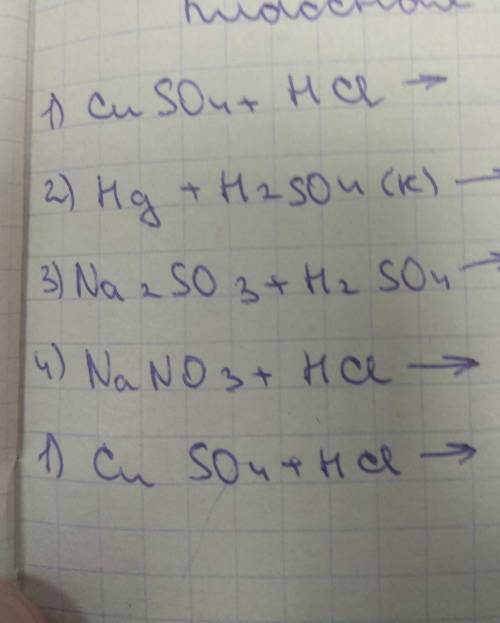 1) CuSO4 + HCl →
2) Hg + H2SO4 (к) →
3) Na2SO3 + H2SO4 →
4) NaNO3 + HCl →
1) CuSO4 + HCl →